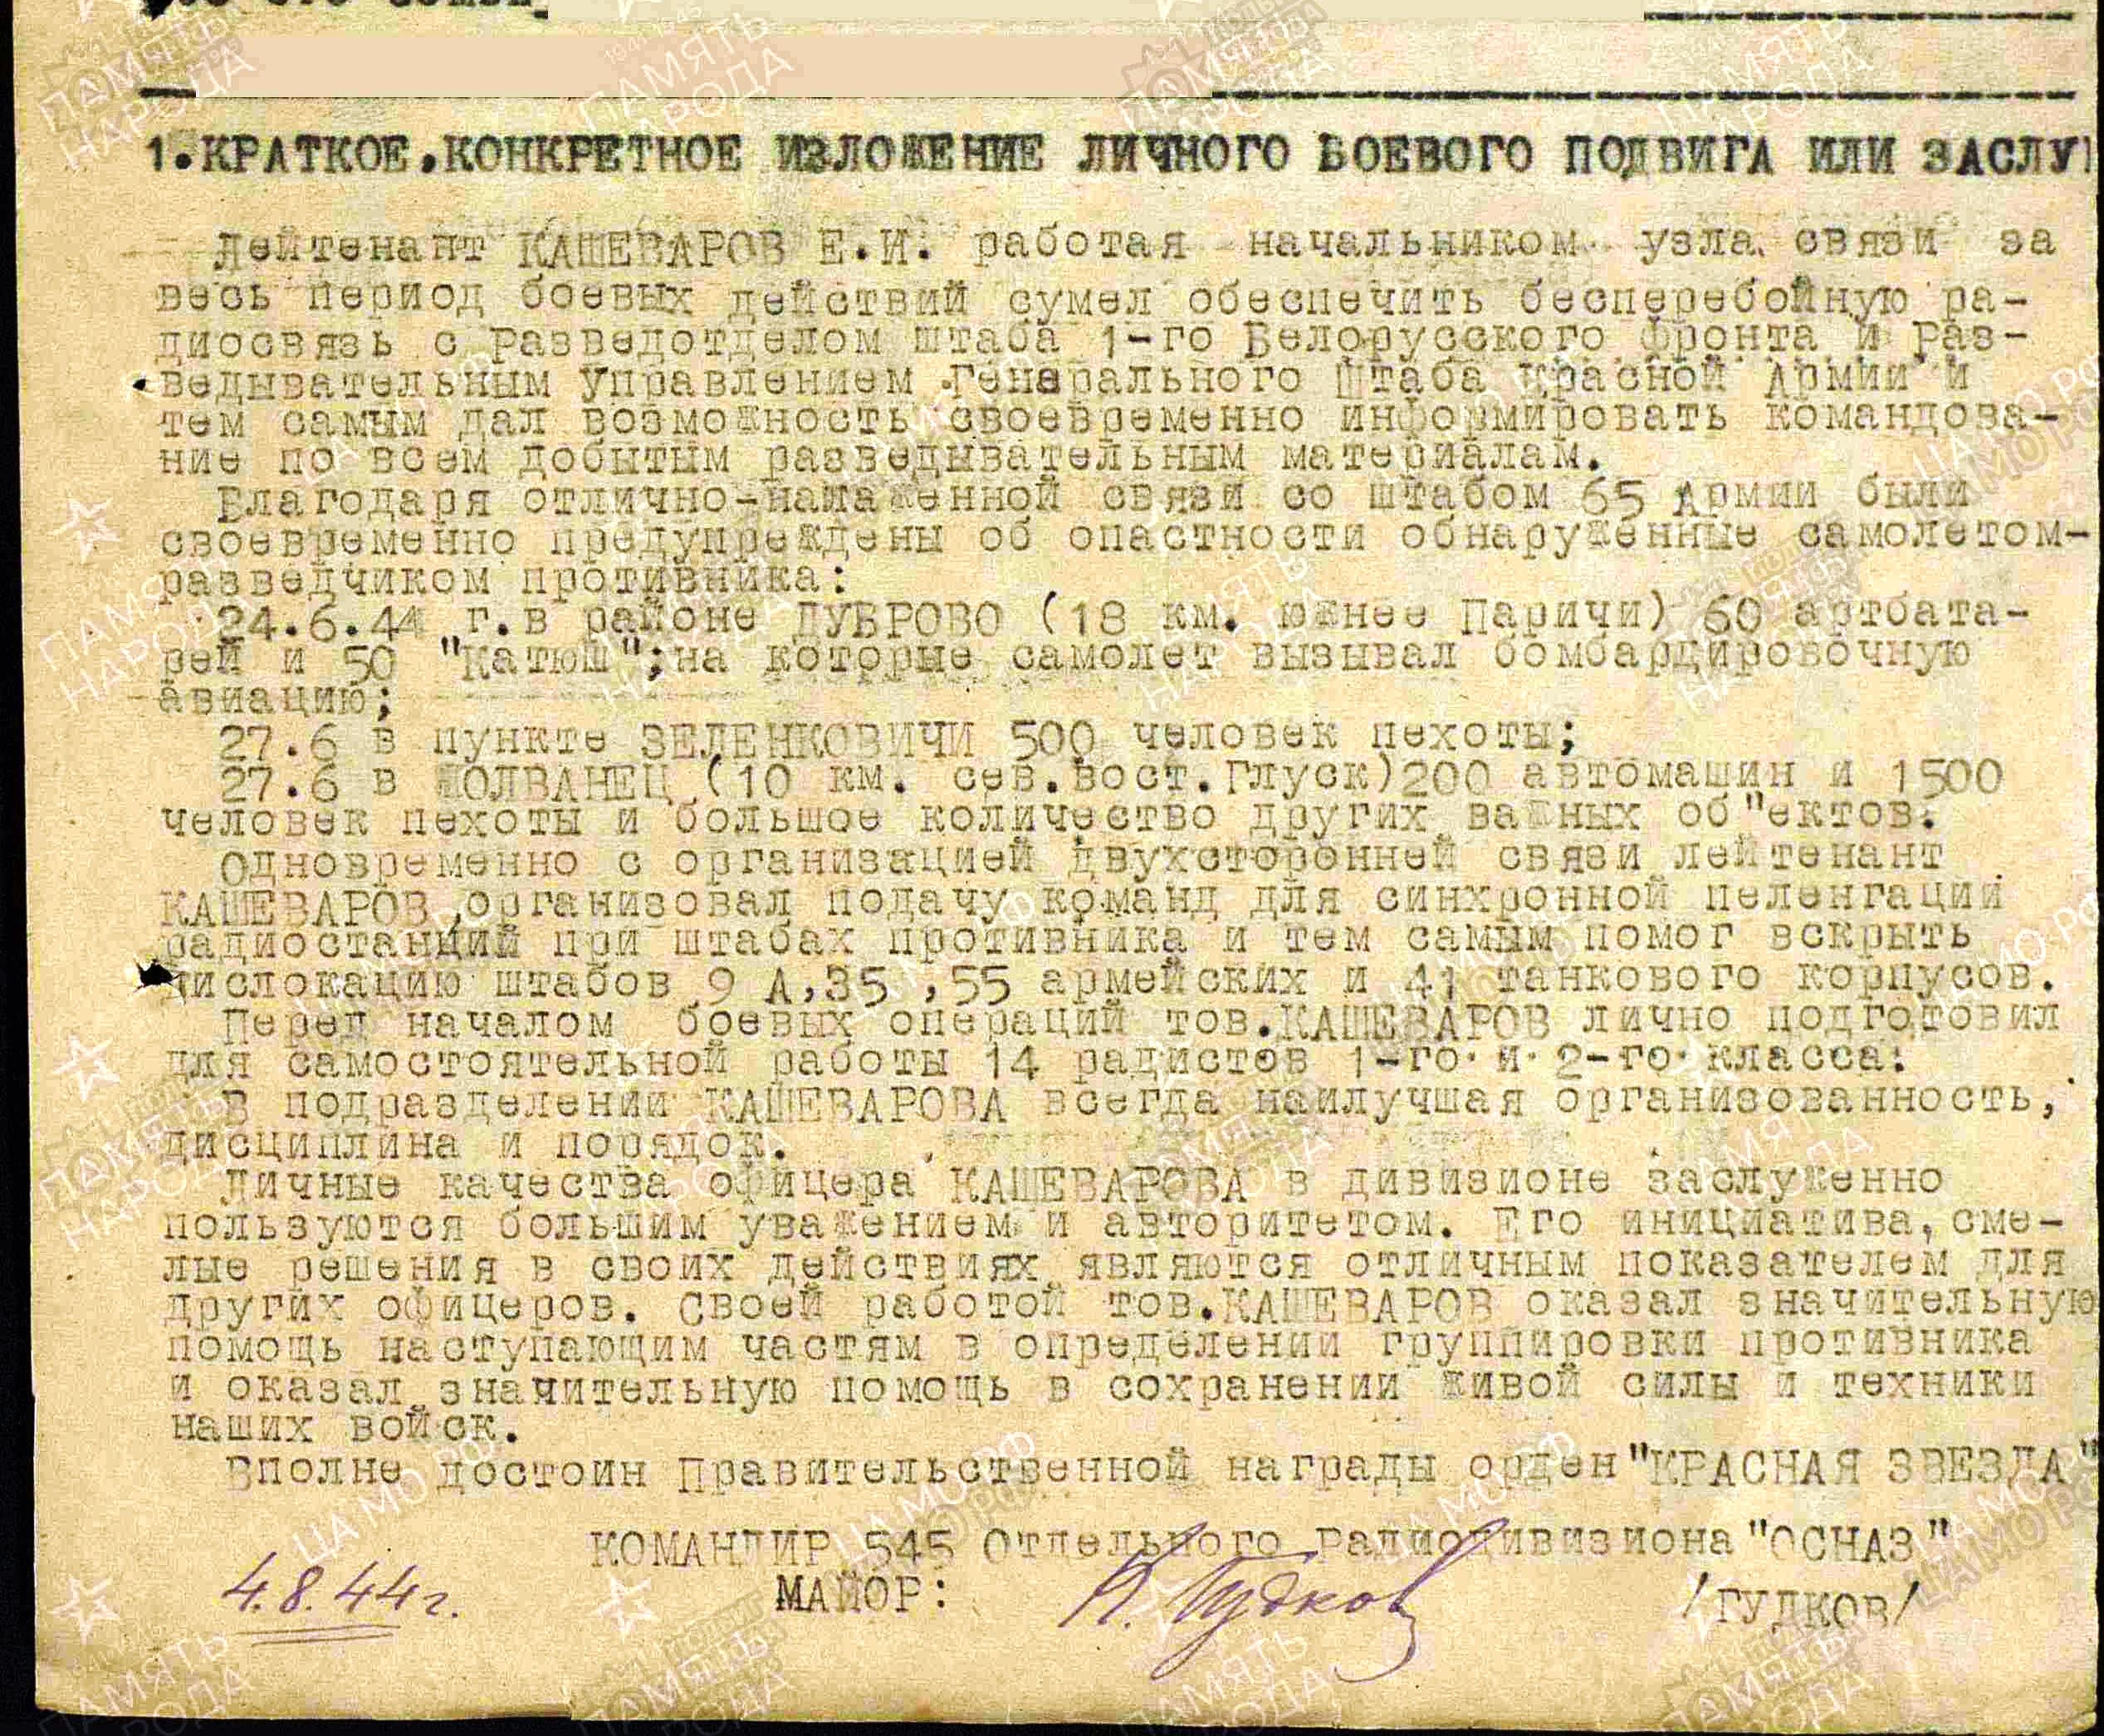 1.КРАТКОЕ.КОНКРЕТНОЕ ИЗЛОЖЕНИЕ ЛИЧНОГО БОЕВОГО ПОДВИГА ИЛИ ЗАСЛУГ
Лейтенант КАШЕВАРОВ Е.И. работая начальником узла связи за
весь период боевых действий сумел обеспечить бесперебойную ра-
диосвязь с Разведотделом штаба 1-го Белорусского фронта и Раз-
ведывательным управлением Генерального Штаба Красной Армии и
тем самым дал возможность своевременно информировать командова-
ние по всем добытым разведывательным материалам.
Благодаря отлично-налаженной связи со штабом 65 Армии были
своевременно предупреждены об опастности обнаруженные самолетом-
разведчиком противника:
24.6.44 г.в районе ДУБРОВО (18 км. южнее Паричи) 60 артбата-
рей и 50 "Катюш";на которые самолет вызывал бомбардировочную
авиацию;
27.6 в пункте ЗЕЛЕНКОВИЧИ 500 человек пехоты;
27.6 в ХОЛВАНЕЦ (10 км. сев.вост.Глуск)200 автомашин и 1500
человек пехоты и большое количество других важных об"ектов.
Одновременно с организацией двухсторонней связи лейтенант
КАШЕВАРОВ,организовал подачу команд для синхронной пеленгации
радиостанций при штабах противника и тем самым помог вскрыть
дислокацию штабов 9 А,35 ,55 армейских и 41 танкового корпусов.
Перед началом боевых операций тов.КАШЕВАРОВ лично подготовил
для самостоятельной работы 14 радистов 1-го и 2-го класса.
В подразделении КАШЕВАРОВА всегда наилучшая организованность,
дисциплина и порядок.
Личные качества офицера КАШЕВАРОВА в дивизионе заслуженно
пользуются большим уважением и авторитетом. Его инициатива,сме-
лые решения в своих действиях являются отличным показателем для
других офицеров. Своей работой тов.КАШЕВАРОВ оказал значительную
помощь наступающим частям в определении группировки противника
и оказал значительную помощь в сохранении живой силы и техники
наших войск.
Вполне достоин Правительственной награды орден"КРАСНАЯ ЗВЕЗДА"
КОМАНДИР 545 Отдельного Радиодивизиона "ОСНАЗ"
4.8.44г. МАЙОР: Н. Гудков /ГУДКОВ/